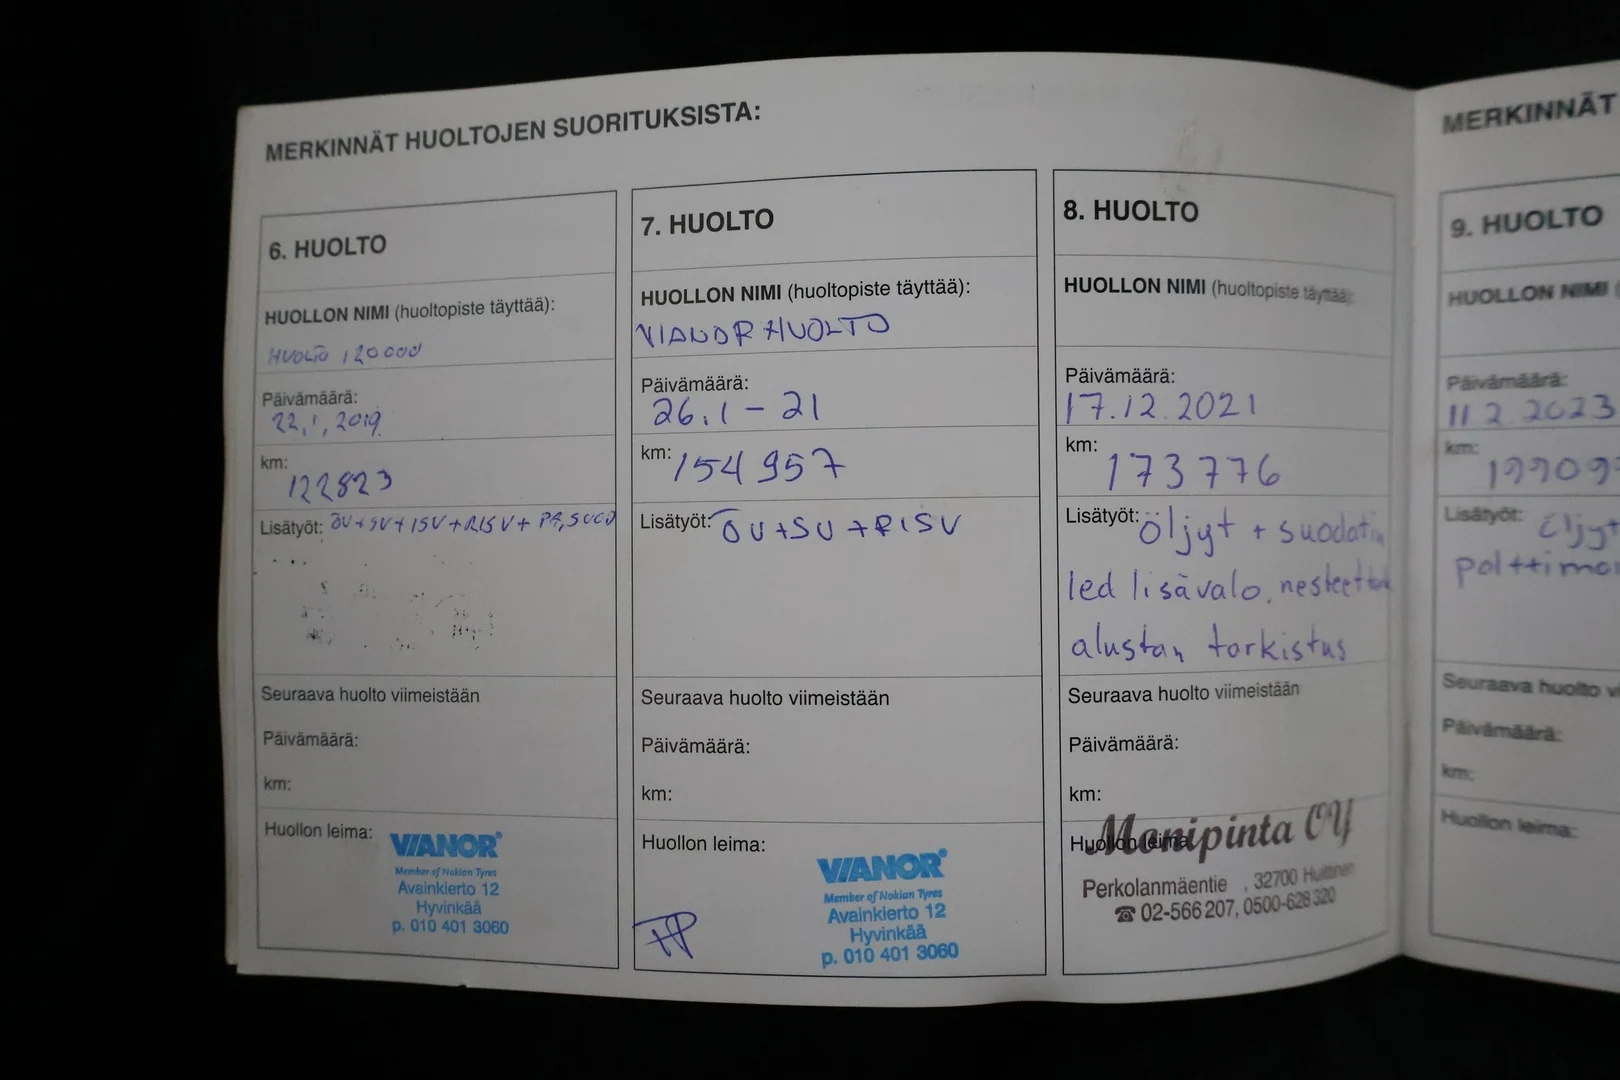 MERKINNÄT HUOLTOJEN SUORITUKSISTA:
6. HUOLTO
HUOLLON NIMI (huoltopiste täyttää):
HUOLTO 120000
Päivämäärä:
22.1.2019
km:
122823
Lisätyöt: ÖV+SV+ISV+RISV+
Seuraava huolto viimeistään
Päivämäärä:
km:
Huollon leima:
VIANOR
Member of Nokian Tyres
Avainkierto 12
Hyvinkää
p. 010 401 3060
7. HUOLTO
HUOLLON NIMI (huoltopiste täyttää):
VIANOR HUOLTO
Päivämäärä:
26.1-21
km: 154957
Lisätyöt: ÖV+SV+RISV
Seuraava huolto viimeistään
Päivämäärä:
km:
Huollon leima:
VIANOR
Member of Nokian Tyres
Avainkierto 12
Hyvinkää
p. 010 401 3060
8. HUOLTO
HUOLLON NIMI (huoltopiste täyttää):
Päivämäärä:
17.12.2021
km:
173776
Lisätyöt: öljyt + suodatin
led lisävalo.
alustan tarkistus
Seuraava huolto viimeistään
Päivämäärä:
km:
Huollon leima:
Monipinta OY
Perkolanmäentie , 32700 Huittinen
☎ 02-566 207, 0500-628 320
MERKINNÄT
9. HUOLTO
HUOLLON NIMI
Päivämäärä:
11.2.2023
km:
Lisätyöt:
Seuraava huolto
Päivämäärä:
km:
Huollon leima: